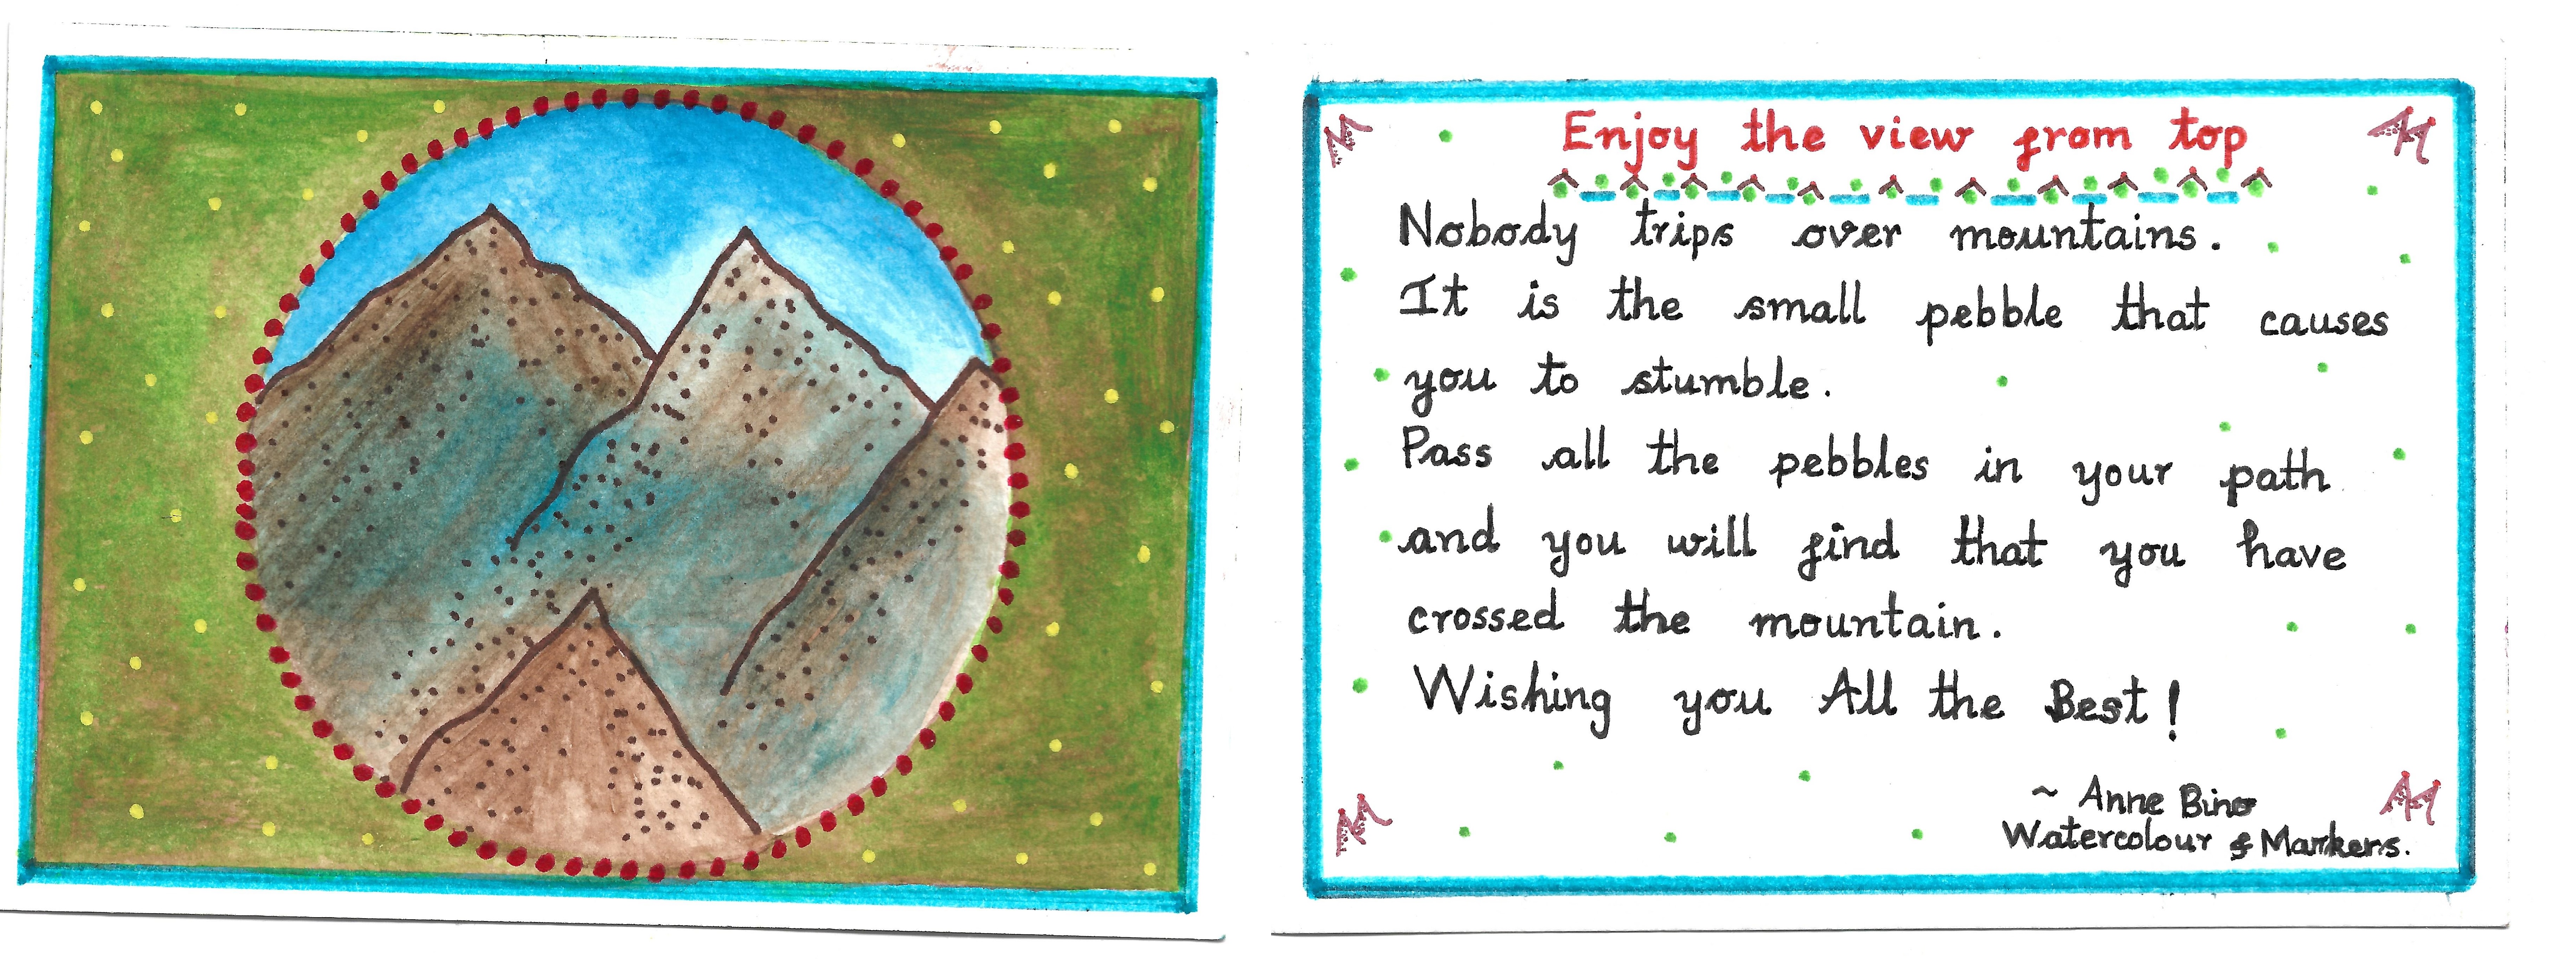 Enjoy the view from top
Nobody trips over mountains.
It is the small pebble that causes
you to stumble.
Pass all the pebbles in your path
and you will find that you have
crossed the mountain.
Wishing you All the Best!
~ Anne Bino
Watercolour & Markers.